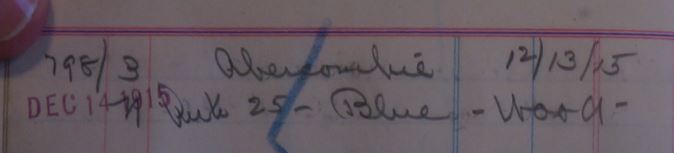 798/3 Abercombie 12/13/15
DEC 14 1915 Rule 25 - Blue - Wood -